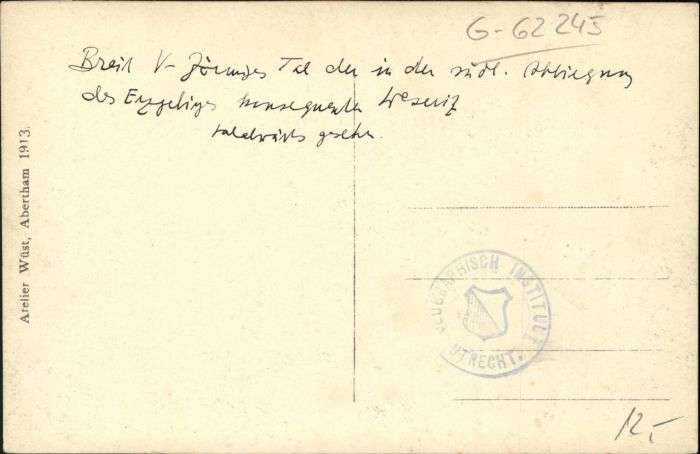 G-62245
Breit V-förmiges Tal der in der südl. Abbiegung
des Erzgebirges konsequenten Weseritz
talabwärts gesehen.
Atelier Wüst, Abertham 1913.
GEOGRAPHISCH INSTITUUT
UTRECHT.
12,-